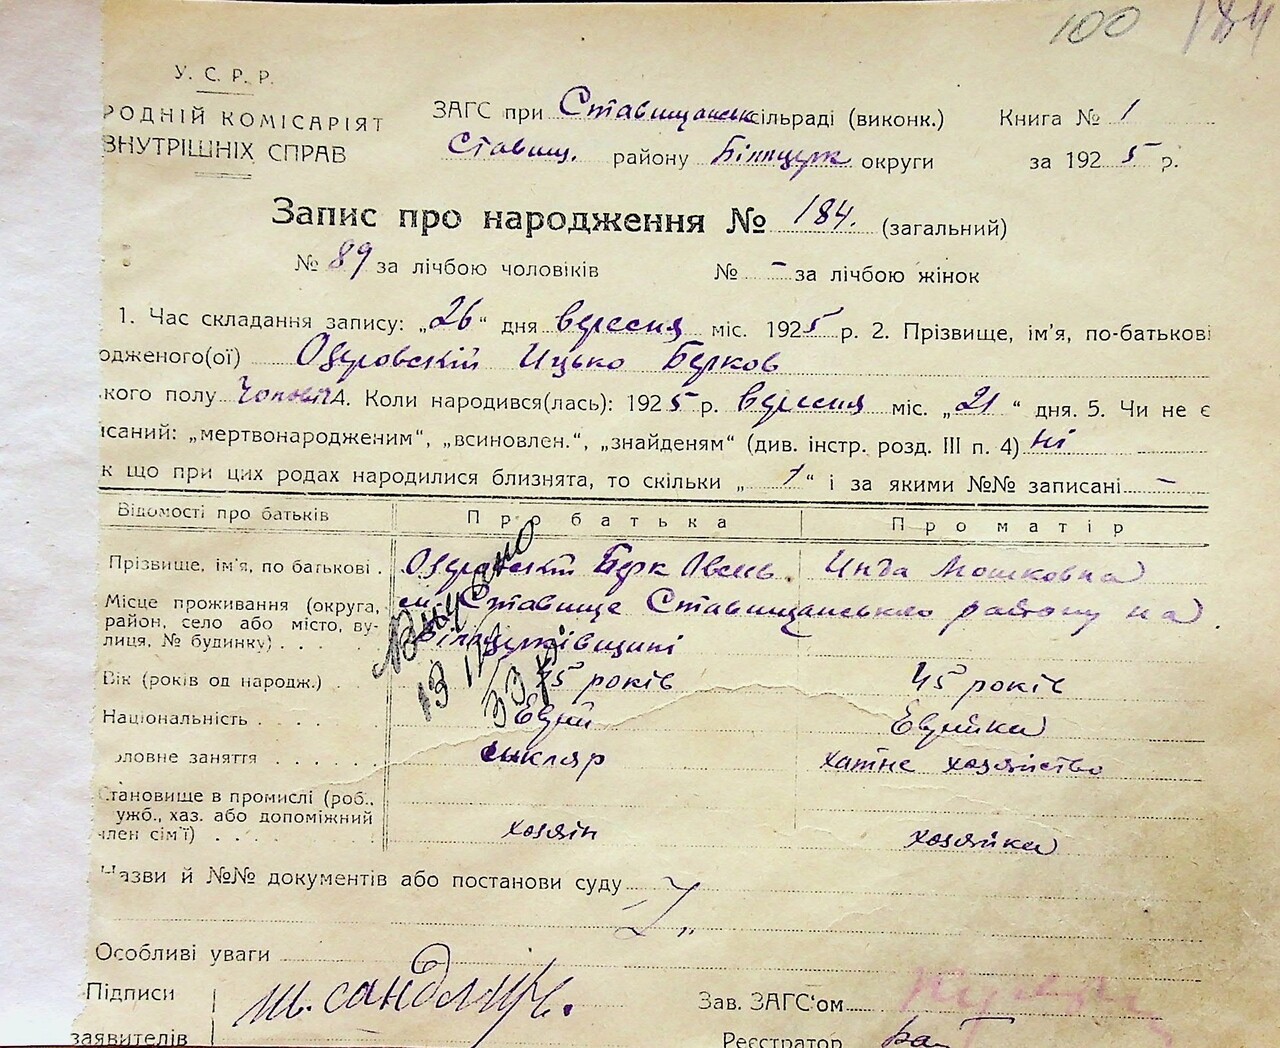 100 184
У. С. Р. Р.
РОДНІЙ КОМІСАРІЯТ
ВНУТРІШНІХ СПРАВ
ЗАГС при Ставищанськ сільраді (виконк.) Книга № 1
Ставищ. району Білоцерк округи за 1925 р.
Запис про народження № 184. (загальний)
№ 89 за лічбою чоловіків № – за лічбою жінок
1. Час складання запису: „26“ дня вересня міс. 1925 р. 2. Прізвище, ім'я, по-батькові
одженого(ої) Озеровскій Ицько Берков
кого полу Чоловіч 4. Коли народився(лась): 1925 р. вересня міс. „21“ дня. 5. Чи не є
исаний: „мертвонародженим“, „всиновлен.“, „знайденям“ (див. інстр. розд. III п. 4) ні
к що при цих родах народилися близнята, то скільки „1“ і за якими №№ записані –
Відомості про батьків Про батька Про матір
Прізвище, ім'я, по батькові . Озеровскій Берк Овсеь. Инда Мошковна
Місце проживання (округа, м. Ставище Ставищанського району на
район, село або місто, ву- Білоцерківщині
лиця, № будинку) . . . .
Вік (років од народж.) . . 45 років 45 років
Національність . . . . . Еврей Еврейка
оловне заняття . . . . . . скляр хатне хозяйство
Становище в промислі (роб.,
ужб., хаз. або допоміжний
член сім'ї) . . . . . хозяін хозяйка
13 33 р
Назви й №№ документів або постанови суду
Особливі уваги
Підписи
заявителів
Ш. Сандлер
Зав. ЗАГС'ом
Реєстратор